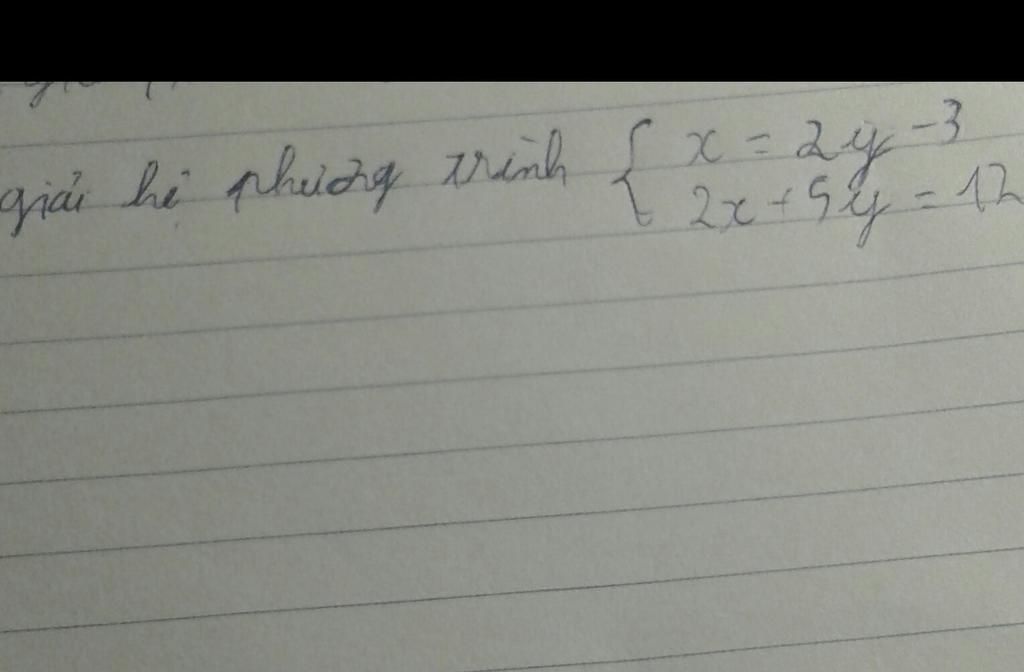 giải hệ phương trình { x = 2y - 3
2x + 5y = 12